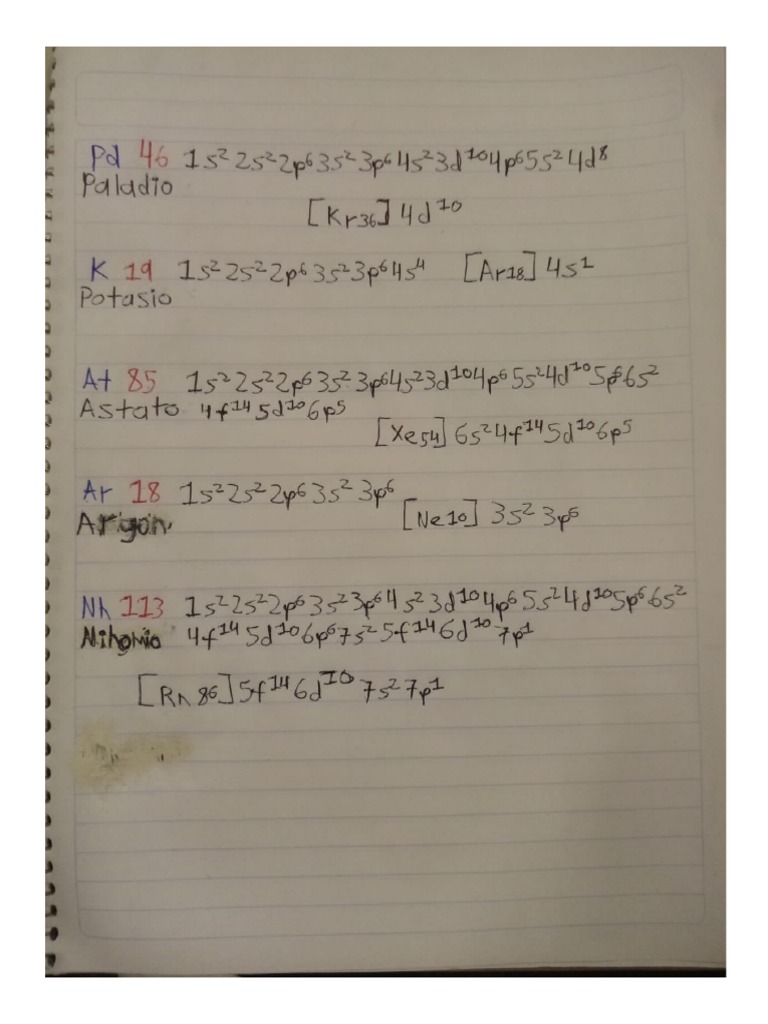 Pd 46 1s² 2s² 2p⁶ 3s² 3p⁶ 4s² 3d¹⁰ 4p⁶ 5s² 4d⁸
Paladio
[Kr36] 4d¹⁰
K 19 1s² 2s² 2p⁶ 3s² 3p⁶ 4s⁴ [Ar18] 4s¹
Potasio
At 85 1s² 2s² 2p⁶ 3s² 3p⁶ 4s² 3d¹⁰ 4p⁶ 5s² 4d¹⁰ 5p⁶ 6s²
Astato 4f¹⁴ 5d¹⁰ 6p⁵
[Xe54] 6s² 4f¹⁴ 5d¹⁰ 6p⁵
Ar 18 1s² 2s² 2p⁶ 3s² 3p⁶
[Ne10] 3s² 3p⁶
Argon
Nh 113 1s² 2s² 2p⁶ 3s² 3p⁶ 4s² 3d¹⁰ 4p⁶ 5s² 4d¹⁰ 5p⁶ 6s²
Nihonio 4f¹⁴ 5d¹⁰ 6p⁶ 7s² 5f¹⁴ 6d¹⁰ 7p¹
[Rn 86] 5f¹⁴ 6d¹⁰ 7s² 7p¹